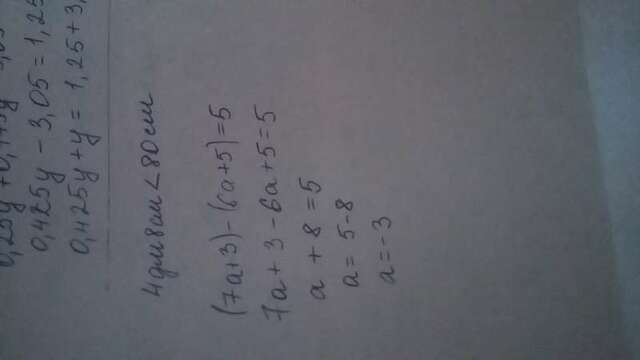 0,425y - 3,05 = 1,25
0,425y + y = 1,25 + 3,
4дм8см < 80см
(7a+3) - (6a+5) = 5
7a + 3 - 6a + 5 = 5
a + 8 = 5
a = 5 - 8
a = -3